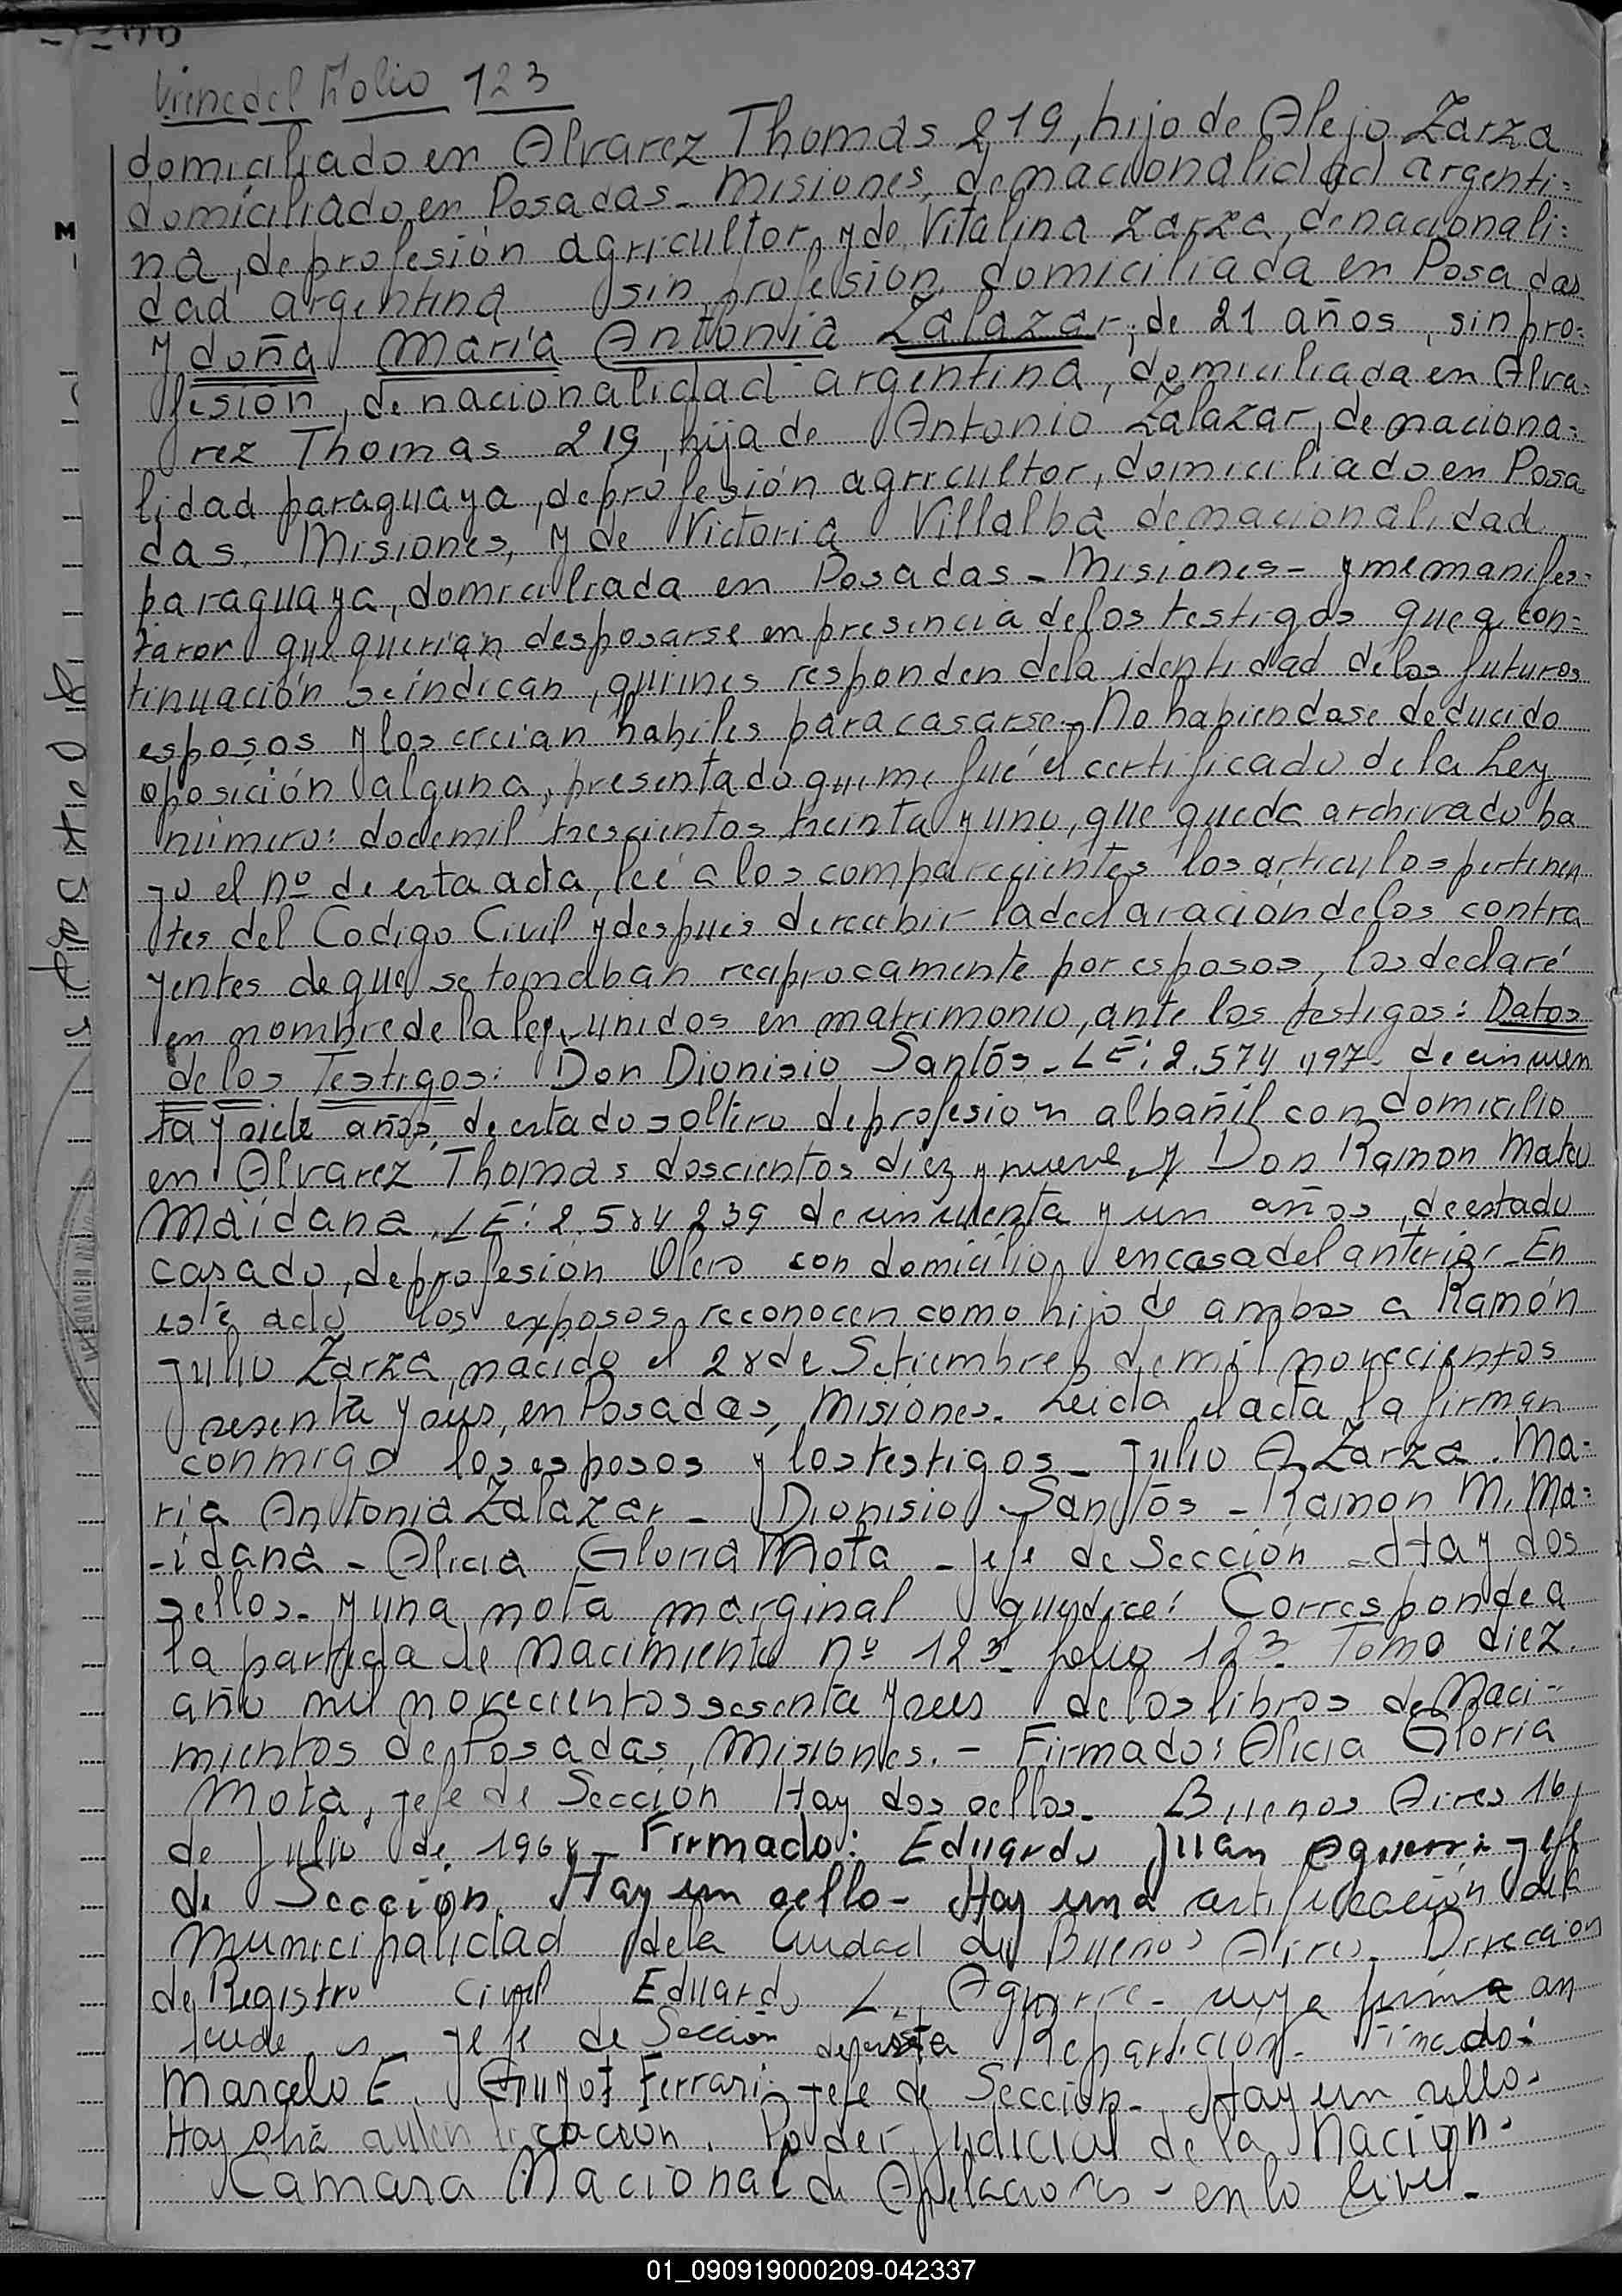 Viene del Folio 123
domiciliado en Alvarez Thomas 219, hijo de Alejo Zarza
domiciliado en Posadas - Misiones, de nacionalidad argenti=
na, de profesión agricultor, y de Vitalina Zarza, de nacionali=
dad argentina sin profesión, domiciliada en Posadas
y doña María Antonia Zalazar, de 21 años, sin pro=
fesión, de nacionalidad argentina, domiciliada en Alva=
rez Thomas 219, hija de Antonio Zalazar, de naciona=
lidad paraguaya, de profesión agricultor, domiciliado en Posa=
das, Misiones, y de Victoria Villalba de nacionalidad
paraguaya, domiciliada en Posadas - Misiones - y me manifes=
taron que querian desposarse en presencia de los testigos que a con=
tinuación se indican, quienes responden de la identidad de los futuros
esposos y los creian habiles para casarse - No habiendose deducido
oposición alguna, presentado que me fué el certificado de la Ley
número: doce mil trescientos treinta y uno, que queda archivado ba
jo el nº de esta acta, leé a los comparecientes los articulos pertinen
tes del Codigo Civil y después de recibir la declaración de los contra
yentes de que se tomaban reciprocamente por esposos, los declaré
en nombre de la ley, unidos en matrimonio, ante los testigos: Datos
de los Testigos: Don Dionisio Santos - LE: 2.574 de cincuen
ta y siete años, de estado soltero de profesion albañil con domicilio
en Alvarez Thomas doscientos diez y nueve, y Don Ramon Mateo
Maidana, LE: 2.584.239 de cincuenta y un años, de estado
casado, de profesión con domicilio en casa del anterior - En
este acto los esposos reconocen como hijo de ambos a Ramón
Julio Zarza, nacido el 28 de Setiembre de mil novecientos
sesenta y seis, en Posadas, Misiones. Leida el acta la firman
conmigo los esposos y los testigos - Julio A Zarza. Ma=
ria Antonia Zalazar - Dionisio Santos - Ramon M. Ma=
-idana - Alicia Gloria Mota - Jefe de Sección - Hay dos
sellos - y una nota marginal que dice: Corresponde a
la partida de Nacimiento nº 123 - folio 123 - Tomo diez
año mil novecientos sesenta y seis de los libros de Naci-
mientos de Posadas, Misiones. - Firmado: Alicia Gloria
Mota, Jefe de Sección Hay dos sellos - Buenos Aires 16,
de Julio de 1968 - Firmado: Eduardo Juan Aguerri - Jefe
de Sección. Hay un sello - Hay una certificación de la
Municipalidad de la Ciudad de Buenos Aires. Dirección
de Registro Civil Eduardo Aguerre - cuya firma an
tecede es Jefe de Sección de esta Repartición - Firmado:
Marcelo E. Ferrari - Jefe de Sección - Hay un sello -
Hay otra autenticación. Poder Judicial de la Nación -
Camara Nacional de Apelaciones - en lo Civil -
01_090919000209-042337